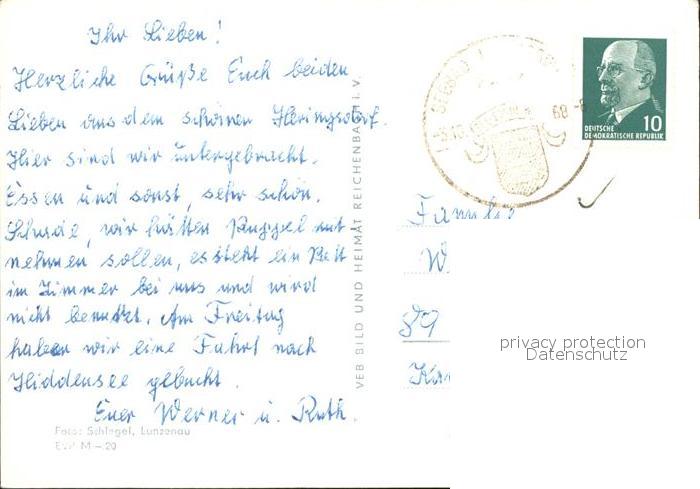 Ihr Lieben!
Herzliche Grüße Euch beiden
Lieben aus dem schönen Heringsdorf.
Hier sind wir untergebracht.
Essen und sonst, sehr schön.
Schade, wir hätten mit
nehmen sollen, es steht ein Bett
im Zimmer bei uns und wird
nicht benutzt. Am Freitag
haben wir eine Fahrt nach
Hiddensee gebucht.
Euer Werner u. Ruth.
Foto: Schlegel, Lunzenau
M - 20
VEB BILD UND HEIMAT REICHENBACH i. V.
DEUTSCHE 10
DEMOKRATISCHE REPUBLIK
W
privacy protection
Datenschutz